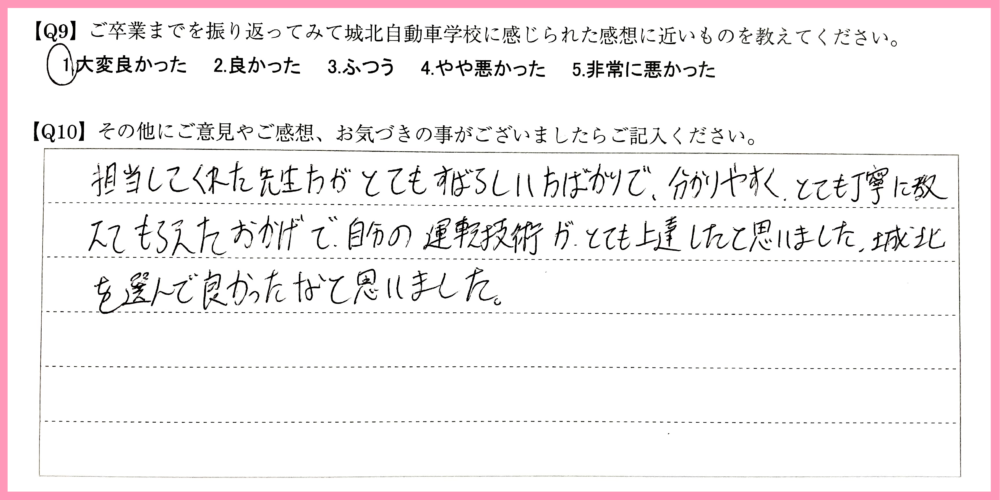 【Q9】ご卒業までを振り返ってみて城北自動車学校に感じられた感想に近いものを教えてください。
1.大変良かった 2.良かった 3.ふつう 4.やや悪かった 5.非常に悪かった
【Q10】その他にご意見やご感想、お気づきの事がございましたらご記入ください。
担当してくれた先生方がとてもすばらしい方ばかりで、分かりやすく、とても丁寧に教
えてもらえたおかげで、自分の運転技術が、とても上達したと思いました、城北
を選んで良かったなと思いました。